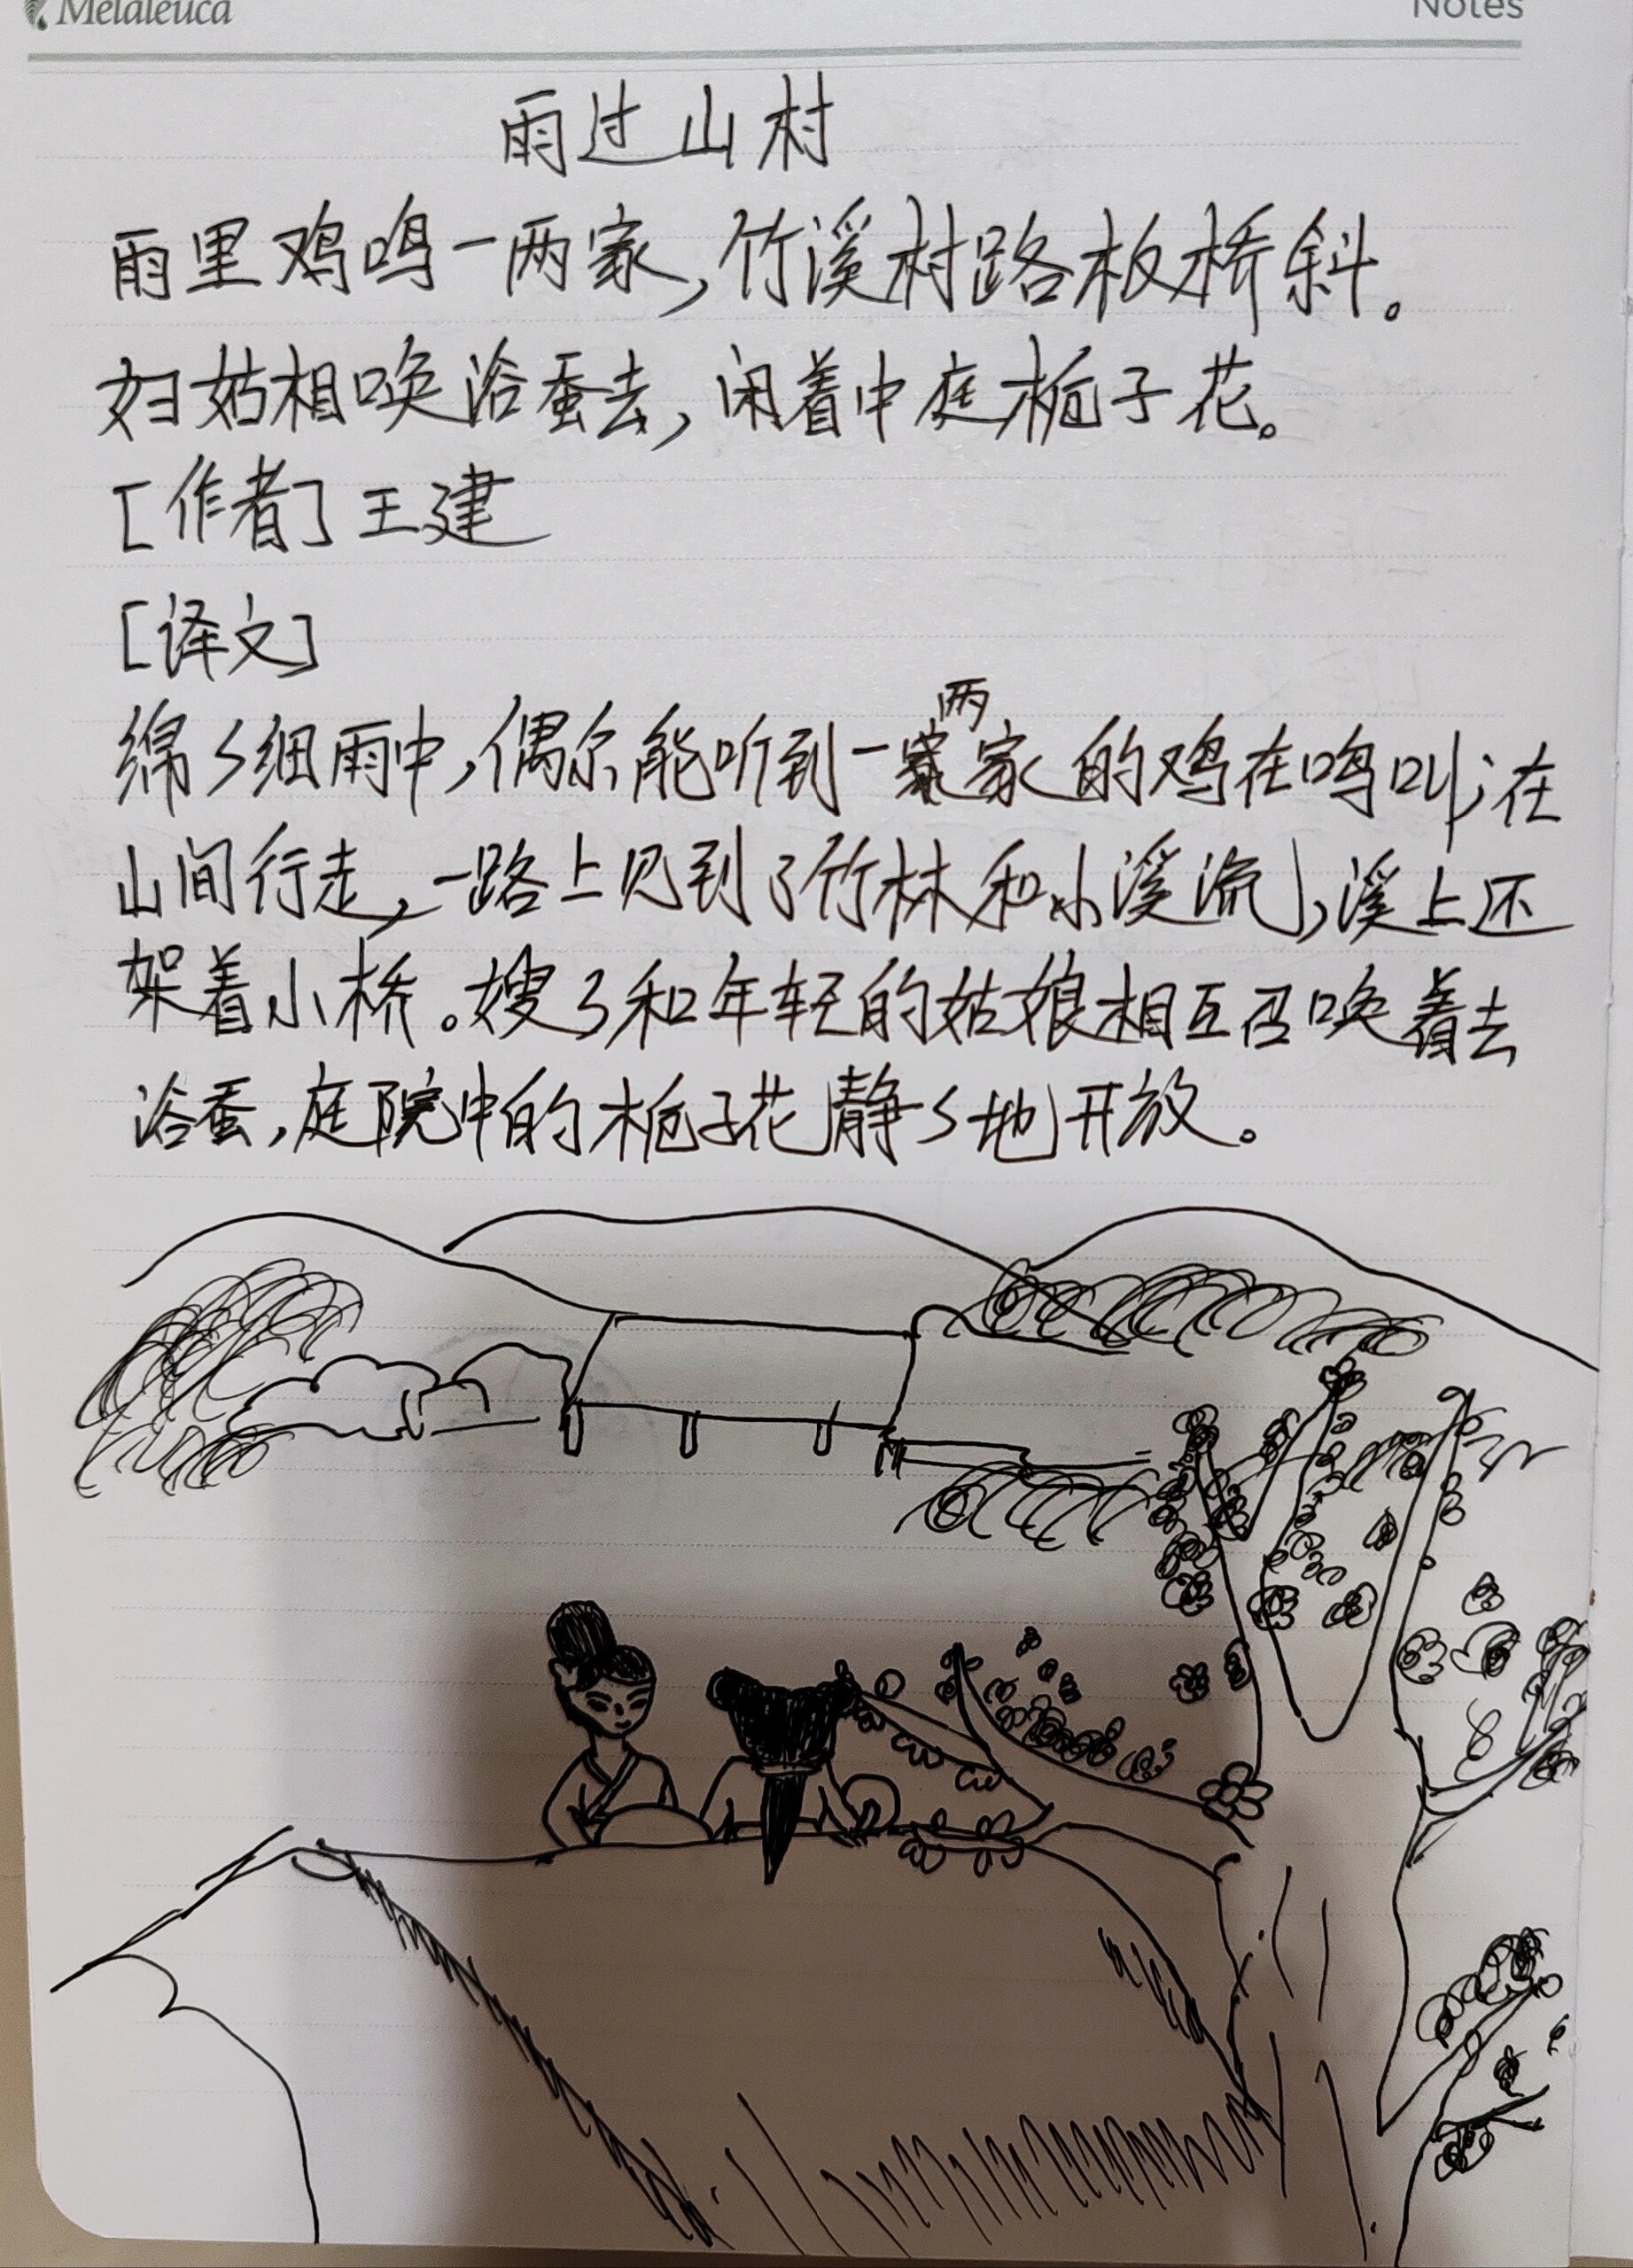 Melaleuca
Notes
雨过山村
雨里鸡鸣一两家，竹溪村路板桥斜。
妇姑相唤浴蚕去，闲着中庭栀子花。
[作者] 王建
[译文]
绵々细雨中，偶尔能听到一两家的鸡在鸣叫；在
山间行走，一路上见到了竹林和小溪流，溪上还
架着小桥。嫂々和年轻的姑娘相互召唤着去
浴蚕，庭院中的栀子花静々地开放。